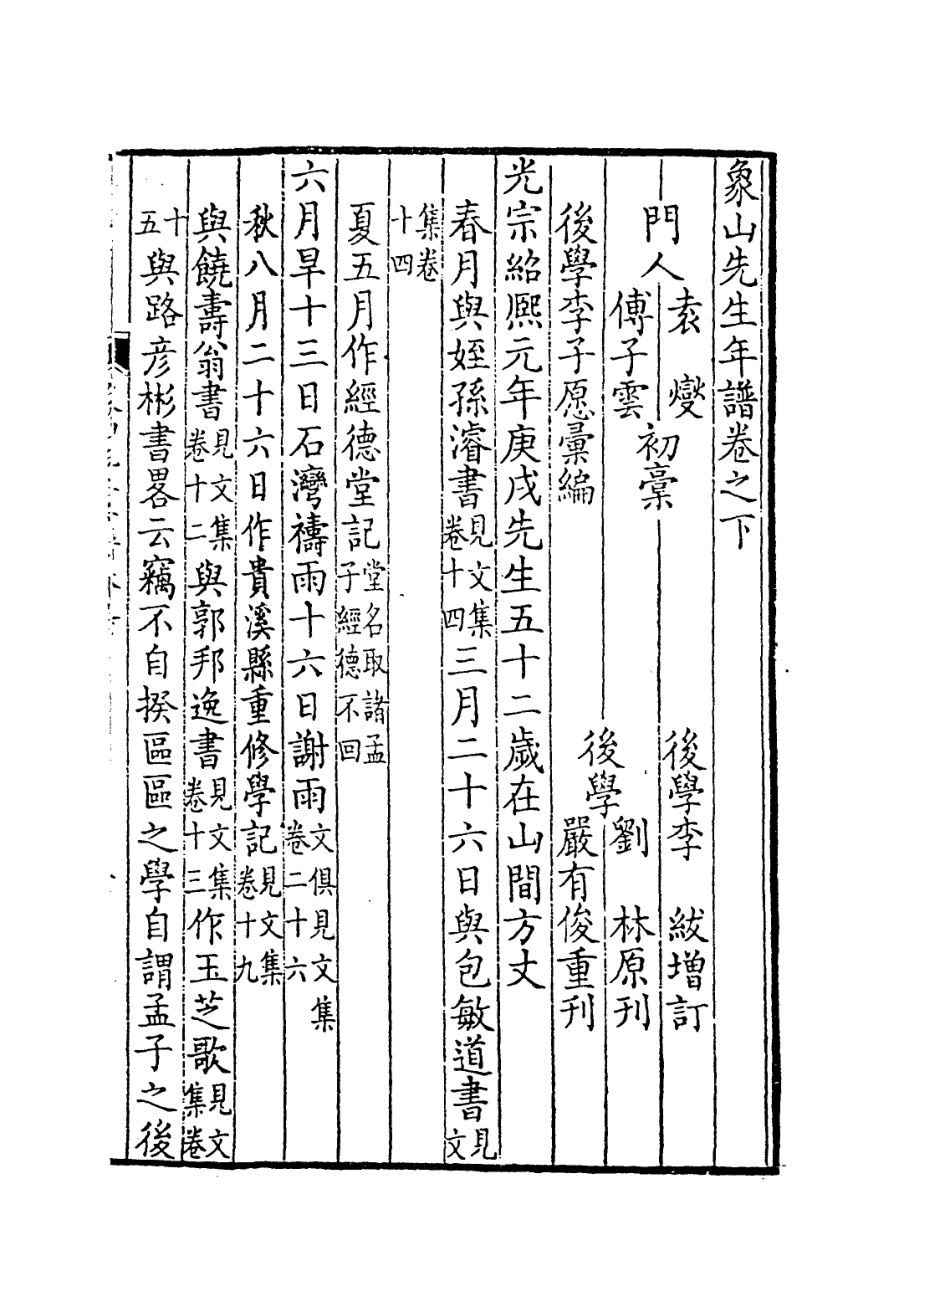 象山先生年譜卷之下
門人袁燮傅子雲初稾　後學李紱增訂
後學劉林原刊
後學李子愿彙編　嚴有俊重刊
光宗紹熙元年庚戌先生五十二歲在山間方丈
春月與姪孫濬書見文集卷十四三月二十六日與包敏道書見文
集卷十四
夏五月作經德堂記堂名取諸孟子經德不回
六月旱十三日石灣禱雨十六日謝雨文俱見文集卷二十六
秋八月二十六日作貴溪縣重修學記見文集卷十九
與饒壽翁書見文集卷十二與郭邦逸書見文集卷十三作玉芝歌見文集卷
十五與路彦彬書畧云竊不自揆區區之學自謂孟子之後